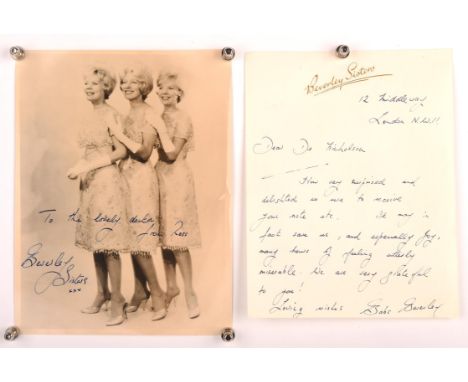 To the lovely doctor
from Ross
Beverley
Sisters
xxx
Beverley Sisters
12 Middleway,
London N.W.11
Dear Dr Nicholson
How very surprised and
delighted we were to receive
your note etc. It may in
fact save us, and especially Joy,
many hours of feeling utterly
miserable. We are very grateful
to you!
Loving wishes Babs Beverley